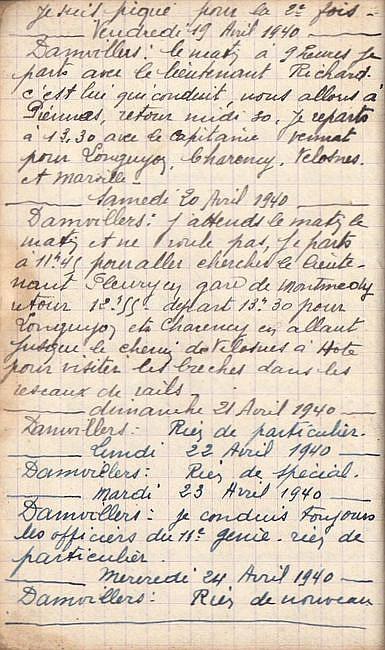 Je suis piqué pour la 2e fois -
Vendredi 19 Avril 1940
Damvillers: le matz à 9 heures je
parts avec le lieutenant Richard
c'est lui qui conduit, nous allons à
Piennes, retour midi 30. Je reparts
à 13,30 avec le capitaine
pour Longuyon, Charency, Velosnes.
et Marville
Samedi 20 Avril 1940
Damvillers: j'attends le matz le
matz et ne roule pas, je parts
à 11h45 pour aller chercher le lieute-
nant Fleury en gare de Montmedy
retour 12h55 départ 13h30 pour
Longuyon et Charency en allant
jusque le chemin de Velosnes à
pour visiter les breches dans les
reseaux de rails
dimanche 21 Avril 1940
Damvillers: Rien de particulier.
Lundi 22 Avril 1940
Damvillers: Rien de spécial.
Mardi 23 Avril 1940
Damvillers: je conduis toujours
les officiers du 11e genie. rien de
particulier.
Mercredi 24 Avril 1940
Damvillers: Rien de nouveau